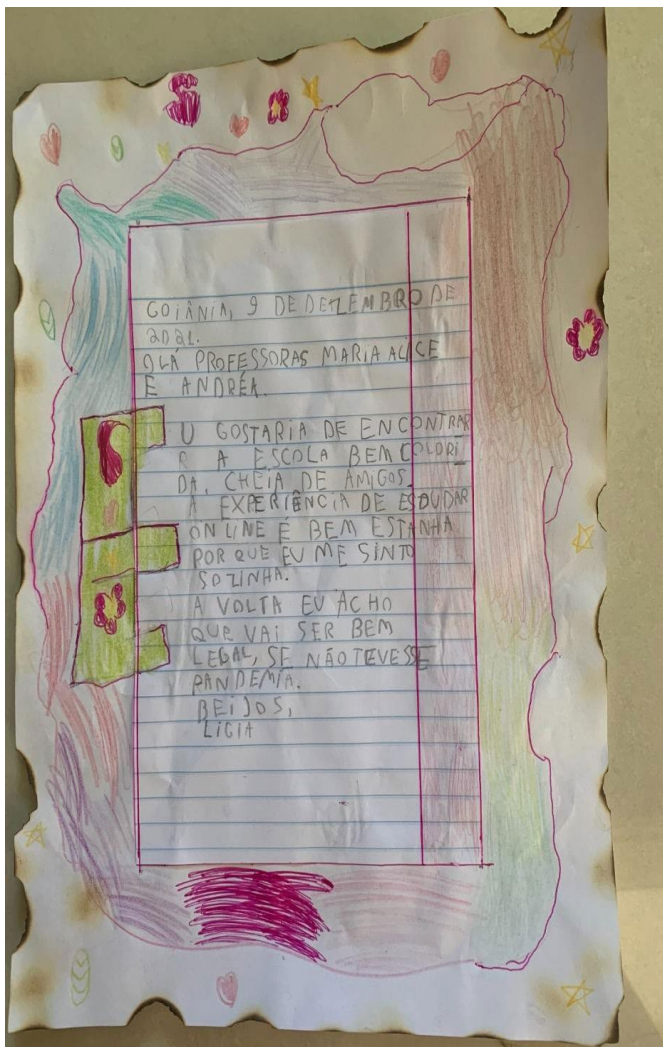 GOIÂNIA, 9 DE DEZEMBRO DE
2021.
OLÁ PROFESSORAS MARIA ALICE
E ANDRÉA.
E
U GOSTARIA DE ENCONTRAR
R A ESCOLA BEM COLORI
DA, CHEIA DE AMIGOS.
A EXPERIÊNCIA DE ESDUDAR
ONLINE É BEM ESTANHA
POR QUE EU ME SINTO
SOZINHA.
A VOLTA EU ACHO
QUE VAI SER BEM
LEGAL, SE NÃO TEVESSE
PANDEMIA.
BEIJOS,
LIGIA